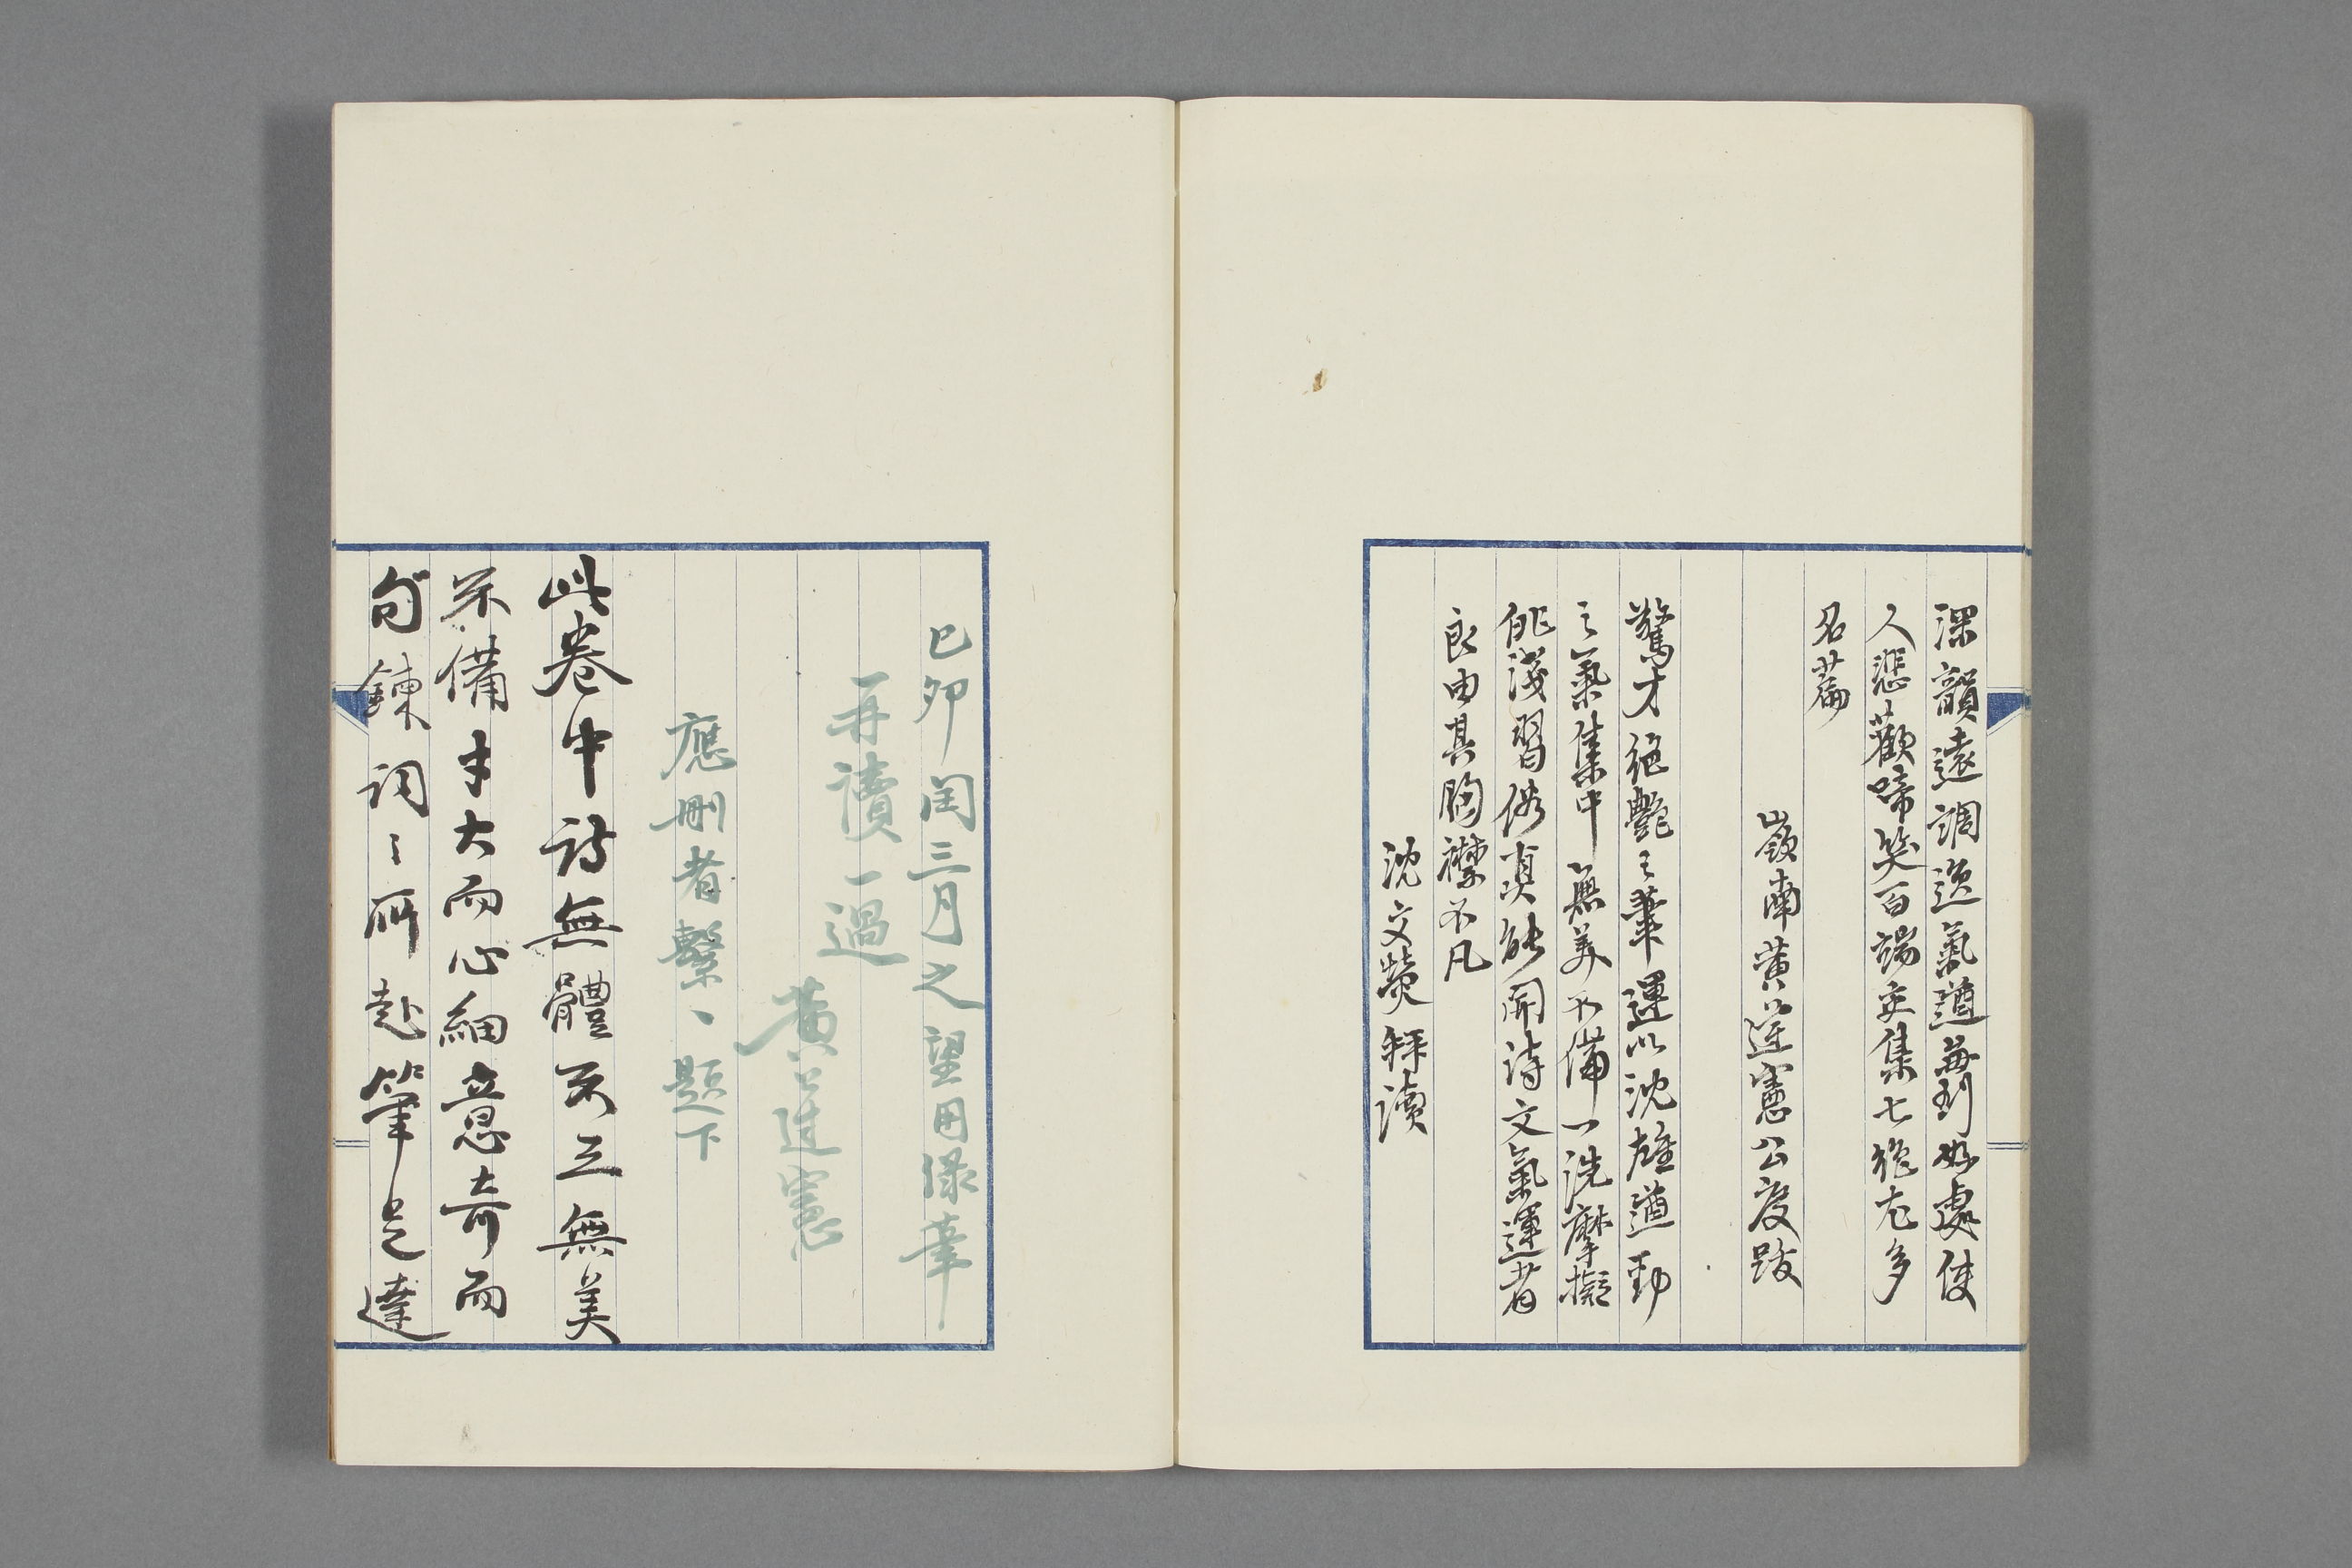 深韻遠調逸氣遒每到好處使
人悲歡啼笑百端交集七絕尤多
名篇
嶺南黃遵憲公度跋
驚才絕艷之筆運以沈雄遒勁
之氣集中無美不備一洗摩擬
俳淺習俗真能開詩文氣運者
良由其胸襟不凡
沈文熒拜讀
己卯閏三月之望用綠筆
再讀一過
黃遵憲
應刪者繫丶題下
此卷中詩無體不工無美
不備才大而心細意奇而
句鍊詞之所赴筆足達